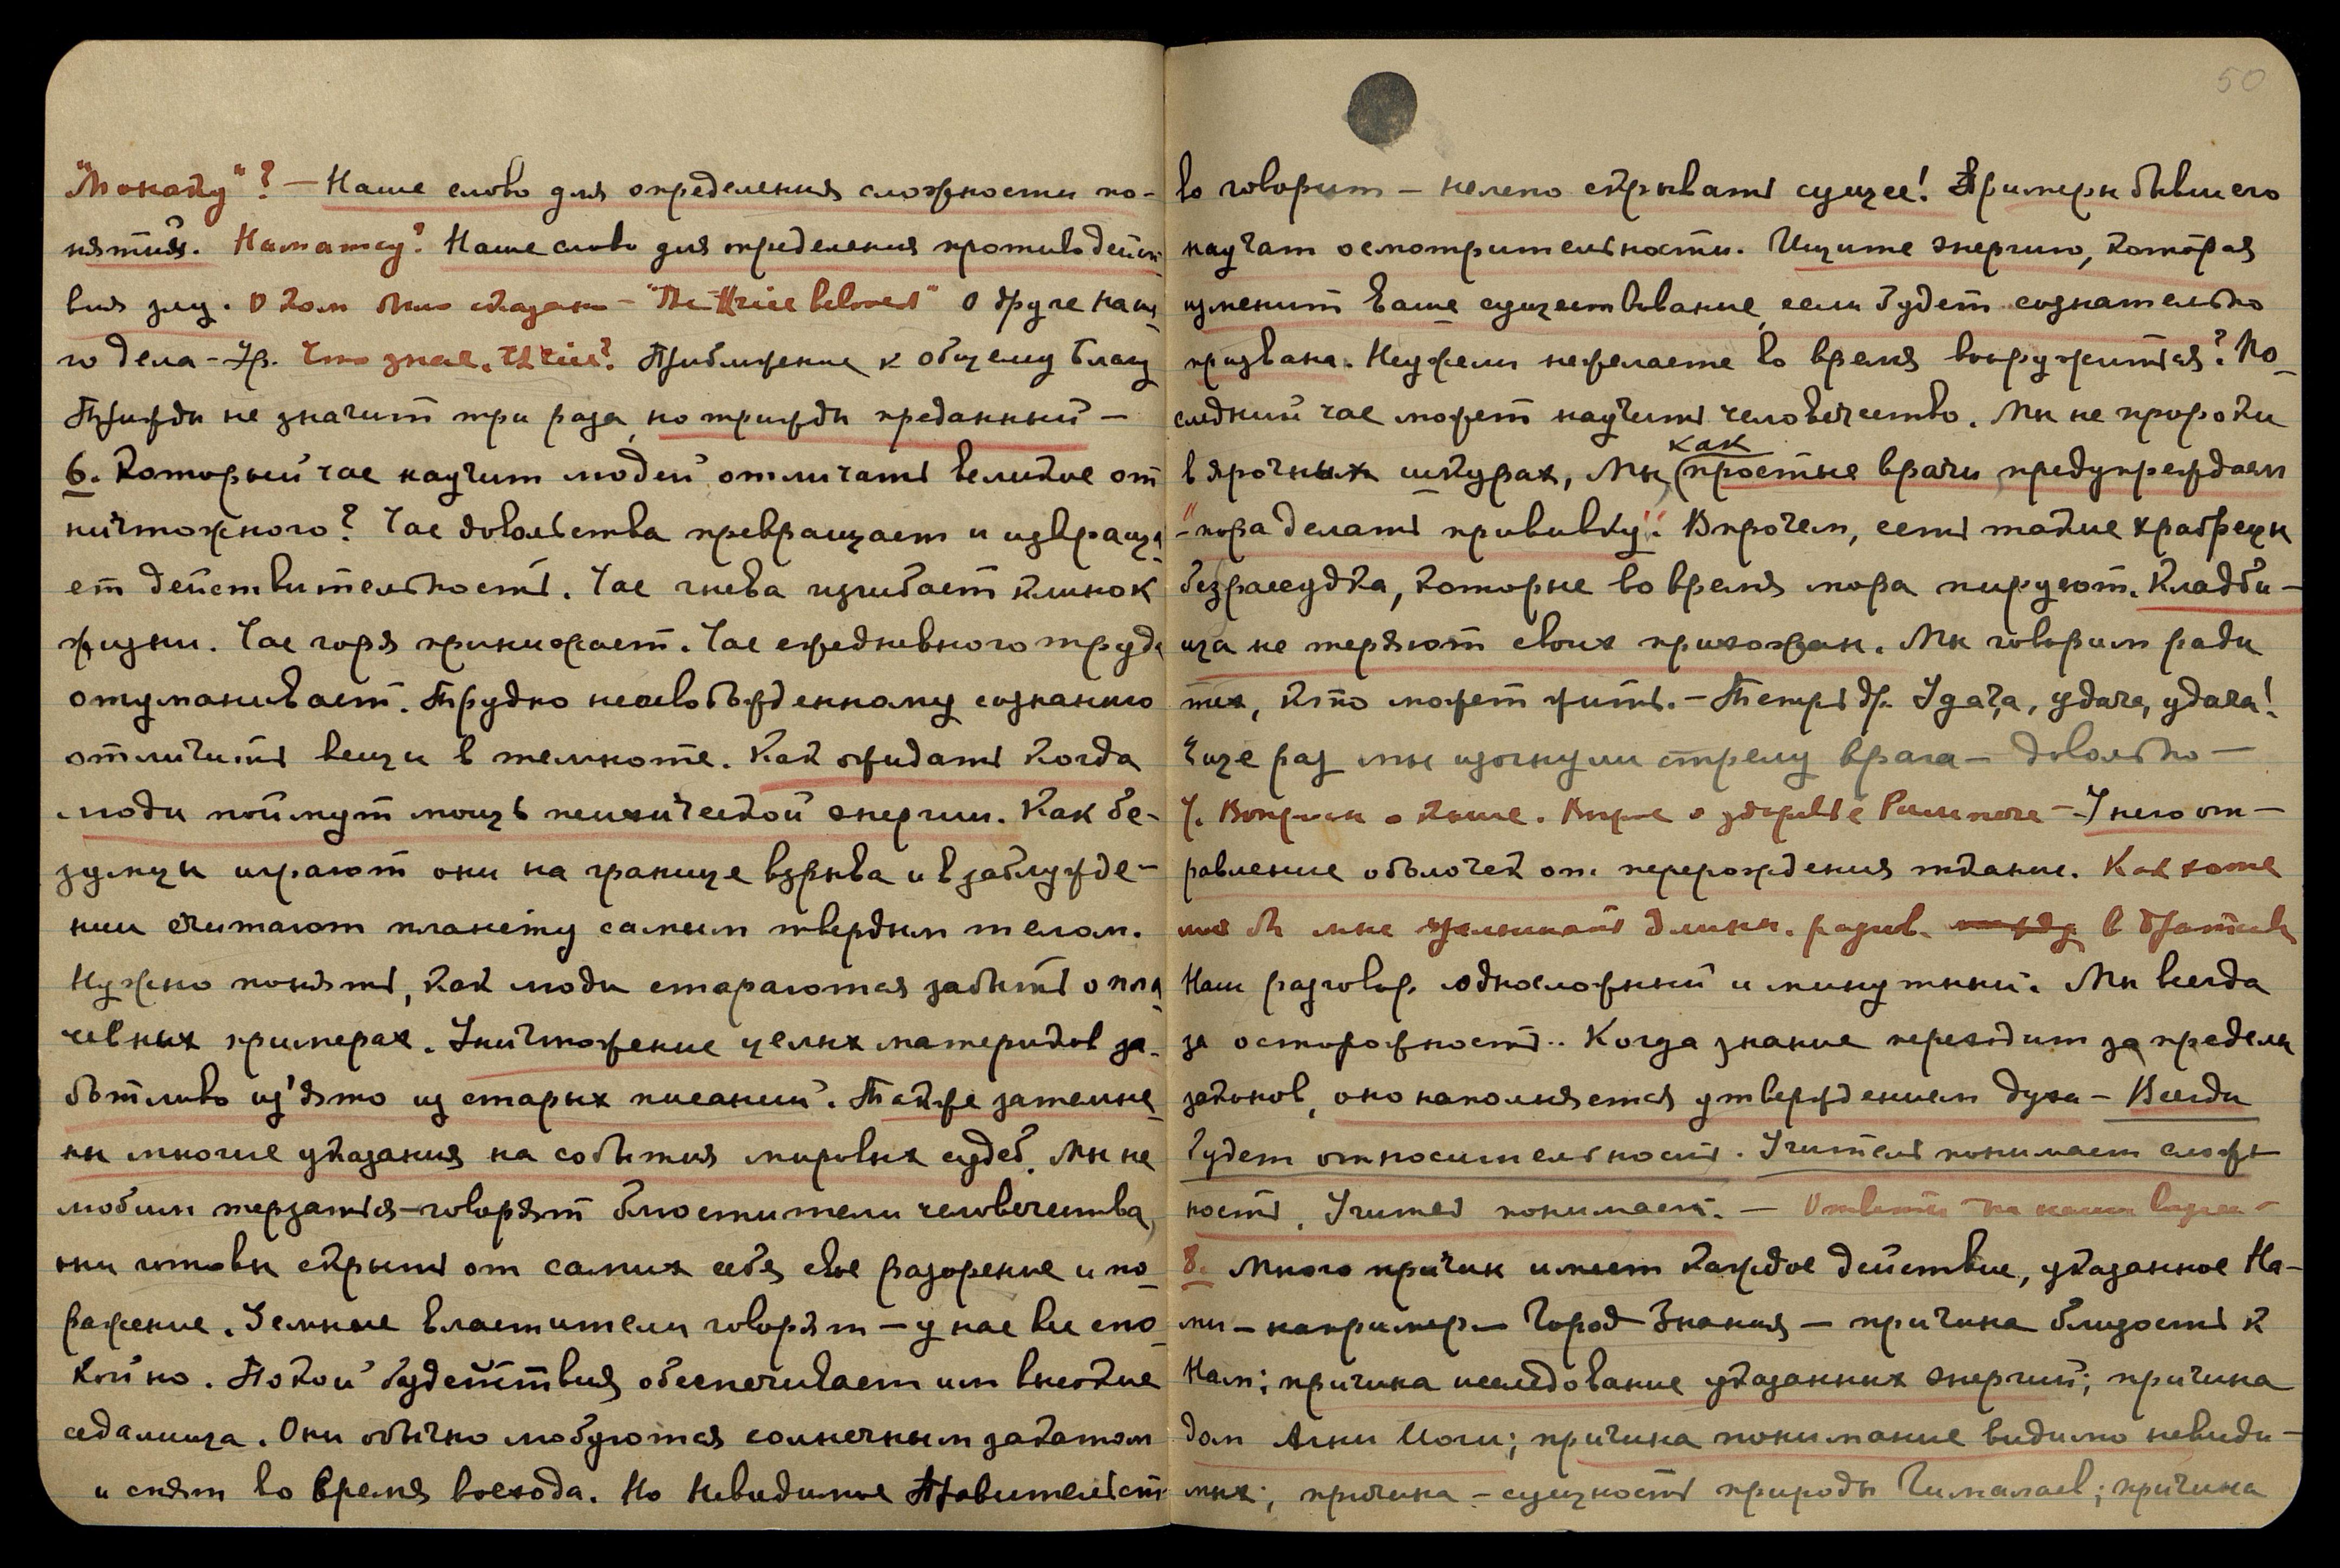 "Монаду"? — Наше слово для определения сложности по-
нятия. Наше слово для определения противодейст-
вия злу. О ком было сказано — "The thrice beloved" О друге наше-
го дела — Что знач. thrice? Приближение к общему благу
Трижды не значит три раза, но трижды преданный —
6. Который час научит людей отличать великое от
ничтожного? Час довольства превращает и извраща-
ет действительность. Час гнева изгибает клинок
жизни. Час горя принижает. Час ежедневного труда
отуманивает. Трудно неосвобожденному сознанию
отличить вещи в темноте. Как ожидать когда
люди поймут мощь психической энергии. Как бе-
зумцы играют они на границе взрыва и в заблужде-
нии считают планету самым твердым телом.
Нужно понять, как люди стараются забыть о пла-
чевных примерах. Уничтожение целых материков за-
ботливо из'ято из старых писаний. Также затемне-
ны многие указания на события мировых судеб. Мы не
любим терзаться — говорят блюстители человечества,
они готовы скрыть от самих себя свое разорение и по-
ражение. Земные властители говорят — у нас все спо-
койно. Покой бездействия обеспечивает им высокие
седалища. Они обычно любуются солнечным закатом
и спят во время восхода. Но Невидимое Правительст-
50
во говорит — нелепо скрывать сущее! Примеры бывшего
научат осмотрительности. Ищите энергию, которая
изменит Ваше существование, если будет сознательно
призвана. Неужели не желаете во время вооружиться? По-
следний час может научить человечество. Мы не пророки
как
в ярочных шкурах, Мы простые врачи предупреждаем
"— пора делать прививку". Впрочем, есть такие храбрецы
безрассудка, которые во время мора пируют. Кладби-
ща не теряют своих прихожан. Мы говорим ради
тех, кто может жить. — Теперь др. Удача, удача, удача!
Еще раз мы изогнули стрелу врага — довольно —
7. Вопросы о книге. Вопрос о здоровье — У него от-
равление оболочек от перерождения ткание. Как хоте
лось бы мне услышать длинн. разгов. в Братстве
Наш разговор односложный и минутный. Мы всегда
за осторожность. Когда знание переходит за пределы
законов, оно наполняется утверждением духа — Всегда
будет относительность. Учитель понимает слож-
ность, Учитель понимает. — Ответы на наши
8. Много причин имеет каждое действие, указанное На-
ми — например — Город Знания — причина близость к
Нам; причина исследование указанных энергий; причина
дом Агни Йоги; причина понимание видимо невиди-
мых; причина — сущность природы Гималаев; причина